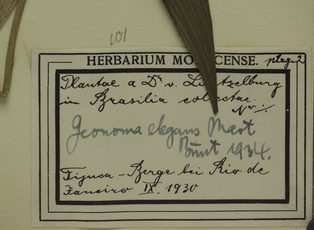 101
HERBARIUM MO CENSE. plag. 2
Plantae a Dr v. Luetzelburg
in Brasilia collectae.
No
Geonoma elegans Mart
Burret 1934.
Tijuca - Berge bei Rio de
Janeiro IX. 1930